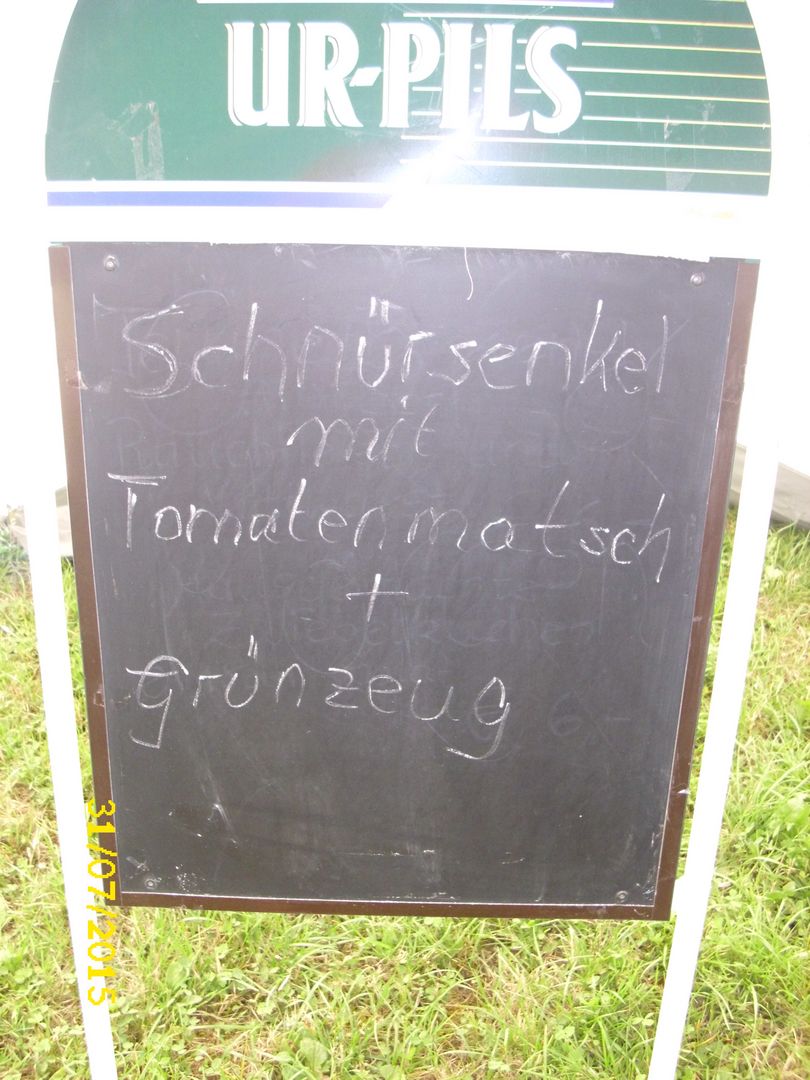 UR-PILS
Schnürsenkel
mit
Tomatenmatsch
+
Grünzeug
31/07/2015